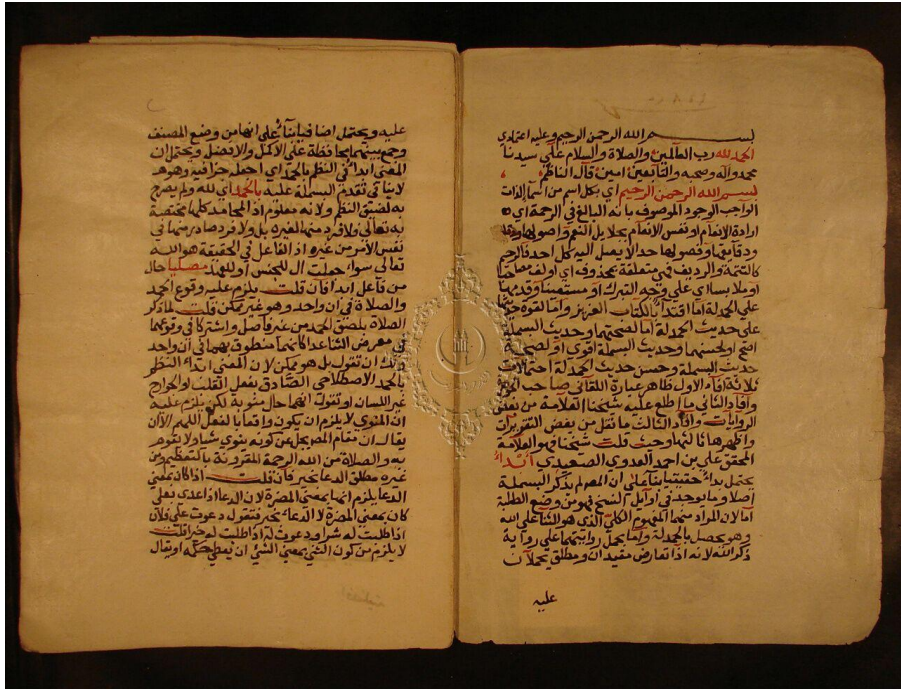 بسم الله الرحمن الرحيم وعليه اعتمادي
الحمد لله رب العالمين والصلاة والسلام علي سيدنا
محمد وآله وصحبه والتابعين امين قال الناظم
بسم الله الرحمن الرحيم اي بكل اسم من اسما الذات
الواجب الوجود الموصوف بانه البالغ في الرحمة اي
ارادة الانعام او نفس الانعام بجلايل النعم واصولها
ودقايقها وفصولها حد لا يصل اليه كل احد فالرحيم
كالتتمة والرديف فهي متعلقة بمحذوف اي اولف مصاحبا
او ملابسا اي علي وجه التبرك او مستعينا وقدمها
علي الحمدلة اما اقتداء بالكتاب العزيز واما لقوة
علي حديث الحمدلة اما لصحتهما وحديث البسملة
اصح او لحسنهما وحديث البسملة اقوي او لصحة
حديث البسملة وحسن حديث الحمدلة احتمالات
ثلاثة افاد الاول ظاهر عبارة اللقاني صاحب
وافاد الثاني ما اطلع عليه شيخنا العلامة من بعض
الروايات وافاد الثالث ما نقل من بعض التقريرات
واظهرها ثالثها وحيث قلت شيخنا فهو العلامة
المحقق علي بن احمد العدوي الصعيدي ابدا
يحتمل بدا حقيقيا بنا علي ان الم لم يذكر البسملة
اصلا وما يوجد في اوايل النسخ فهو من وضع الطلبة
اما لان المراد منهما المفهوم الكلي الذي هو الثنا علي الله
وهو يحصل بالحمدلة واما بحمل روايتهما علي رواية
ذكر الله لانه اذا تعارض مقيدان ومطلق يحملان
عليه
عليه ويحتمل اضافيا بنا علي انها من وضع المصنف
وجمع بينهما محافظة علي الاكمل والافضل ويحتمل ان
المعني ابدا في النظم بالحمد اي اجعله جزا فيه وهو
لا ينافي تقديم البسملة عليه بالحمد اي لله ولم يصرح
به لضيق النظم ولانه معلوم اذ المحامد كلها مختصة
به تعالي ولا فرد منها لغيره بل ولا فرد صادر منها في
نفس الامر من غيره اذ الفاعل في الحقيقة هو الله
تعالي سواء جعلت ال للجنس او للعهد مصليا حال
من فاعل ابدا فان قلت يلزم عليه وقوع الحمد
والصلاة في ان واحد وهو غير ممكن قلت لما ذكر
الصلاة بلصق الحمد من غير فاصل واشتركا في وقوعهما
في معرض الثنا عدا كانهما منطوق بهما في ان واحد
ولك ان تقول بل هو ممكن لان المعني ابتداء النظم
بالحمد الاصطلاحي الصادق بفعل القلب او الجوارح
غير اللسان او تقول انها حال منوية لكن يلزم عليه
ان المنوي لا يلزم ان يكون واقعا بالفعل اللهم الا ان
يقال ان مقام المص يجل عن كونه ينوي شيا ولا يقوم
به والصلاة من الله الرحمة المقرونة بالتعظيم ومن
غيره مطلق الدعا بخير فان قلت اذا كان بمعني
الدعا يلزم انها بمعني المضرة لان الدعا اذا عدي بعلي
كان بمعني المضرة لا الدعاء بخير فتقول دعوت علي فلان
اذا طلبت له شرا ودعوت له اذا طلبت له خيرا قلت
لا يلزم من كون الشي بمعني الشي ان يعطي حكمه او يقال